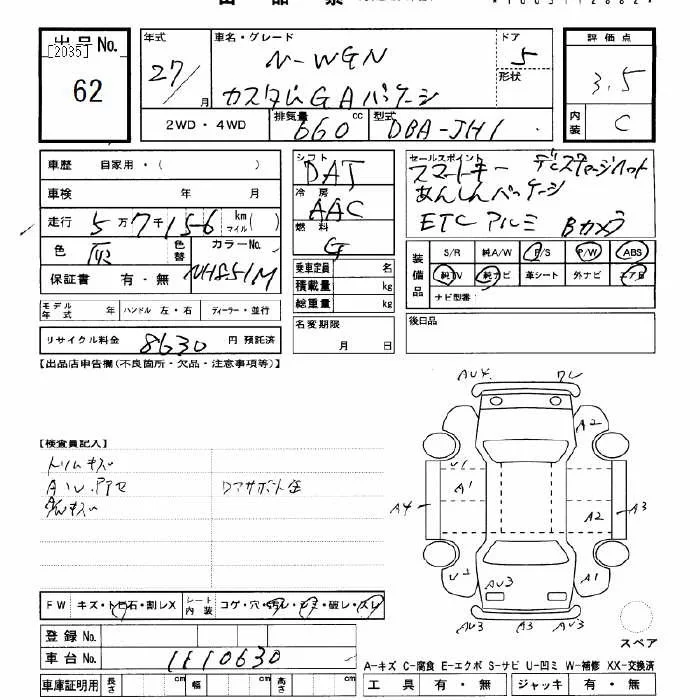 出品票
出品No.
[2035]
62
年式
27/
月
車名・グレード
N-WGN
カスタムG Aパケージ
ドア
5
形状
評価点
3.5
内装
C
2WD・4WD
排気量
660
cc
型式
DBA-JH1
車歴 自家用・( )
車検 年 月
走行 5万7千156 km マイル( )
色
色替
カラーNo.
NH851M
保証書 有・無
モデル年式 年 ハンドル 左・右 ディーラー・並行
リサイクル料金 8630 円 預託済
シフト
DAT
冷房
AAC
燃料
G
乗車定員 名
積載量 kg
総重量 kg
名変期限
月 日
セールスポイント
スマートキー
あんしんパッケージ
ETC アルミ Bカメラ
装備品
S/R 純A/W P/S P/W ABS
純TV 純ナビ 革シート 外ナビ エアB
ナビ型番:
後日品
【出品店申告欄(不良箇所・欠品・注意事項等)】
【検査員記入】
トリムキズ
FW キズ・トビ石・割レX
シート内装 コゲ・穴・汚レ・シミ・破レ・スレ
登録No.
車台No. 1110630
車庫証明用 長さ cm 幅 cm 高さ cm
AU4 ワレ
A2
U1
A1
A4
A2
A3
U2
AU3
A1
AU3 A3 AU3
スペア
A-キズ C-腐食 E-エクボ S-サビ U-凹ミ W-補修 XX-交換済
工具 有・無 ジャッキ 有・無